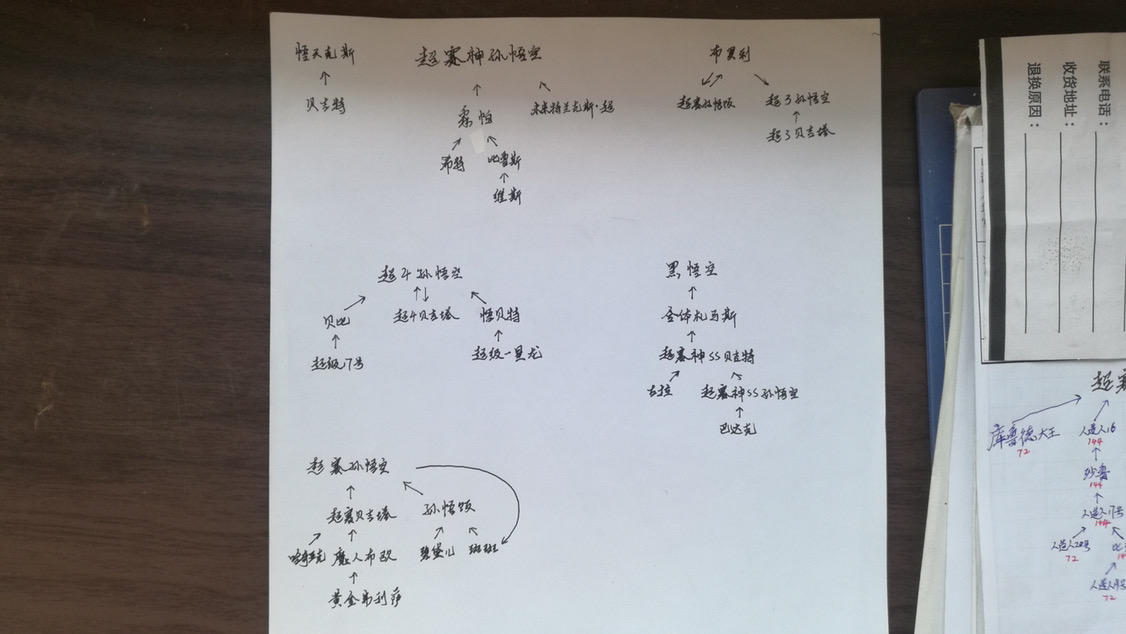 悟天克斯
超赛神孙悟空
布罗利
贝吉特
桑怕
未来特兰克斯·超
超赛孙悟饭
超3孙悟空
超3贝吉塔
希特
比鲁斯
维斯
超4孙悟空
贝比
超4贝吉塔
悟贝特
超级17号
超级一星龙
黑悟空
圣体札马斯
超赛神SS贝吉特
古拉
超赛神SS孙悟空
巴达克
超赛孙悟空
超赛贝吉塔
孙悟饭
魔人布欧
碧黛儿
斑斑
黄金弗利萨
联系电话：
收货地址：
退换原因：
超赛
库鲁德大王
72
人造人16
144
沙鲁
144
人造人17号
144
人造人20号
72
比
人造人19号
72